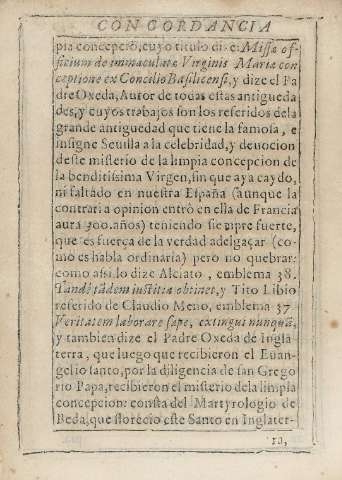 CONCORDANCIA
pia concepciõ, cuyo titulo dize: Missæ of-
ficium de immaculatæ Virginis Mariæ con
ceptione ex Concilio Basilicensi, y dize el Pa
dre Oxeda, Autor de todas estas antigueda
des, y cuyos trabajos son los referidos de la
grande antiguedad que tiene la famosa, e
insigne Seuilla a la celebridad, y deuocion
deste misterio de la limpia concepcion de
la benditissima Virgen, sin que aya caydo,
ni faltado en nuestra España (aunque la
contraria opinion entrò en ella de Francia
aura 300. años) teniendo siẽpre fuerte,
que es fuerça de la verdad adelgaçar (co-
mo es habla ordinaria) pero no quebrar:
como assi lo dize Alciato, emblema 38.
Tandẽ tãdem iustitia obtinet, y Tito Libio
referido de Claudio Meno, emblema 37
Veritatem laborare sæpe, extingui nunquã,
y tambien dize el Padre Oxeda de Ingla
terra, que luego que recibieron el Euan-
gelio santo, por la diligencia de san Grego
rio Papa, recibieron el misterio dela limpia
concepcion: consta del Martyrologio de
Beda, que florecio este Santo en Inglater-
ra,